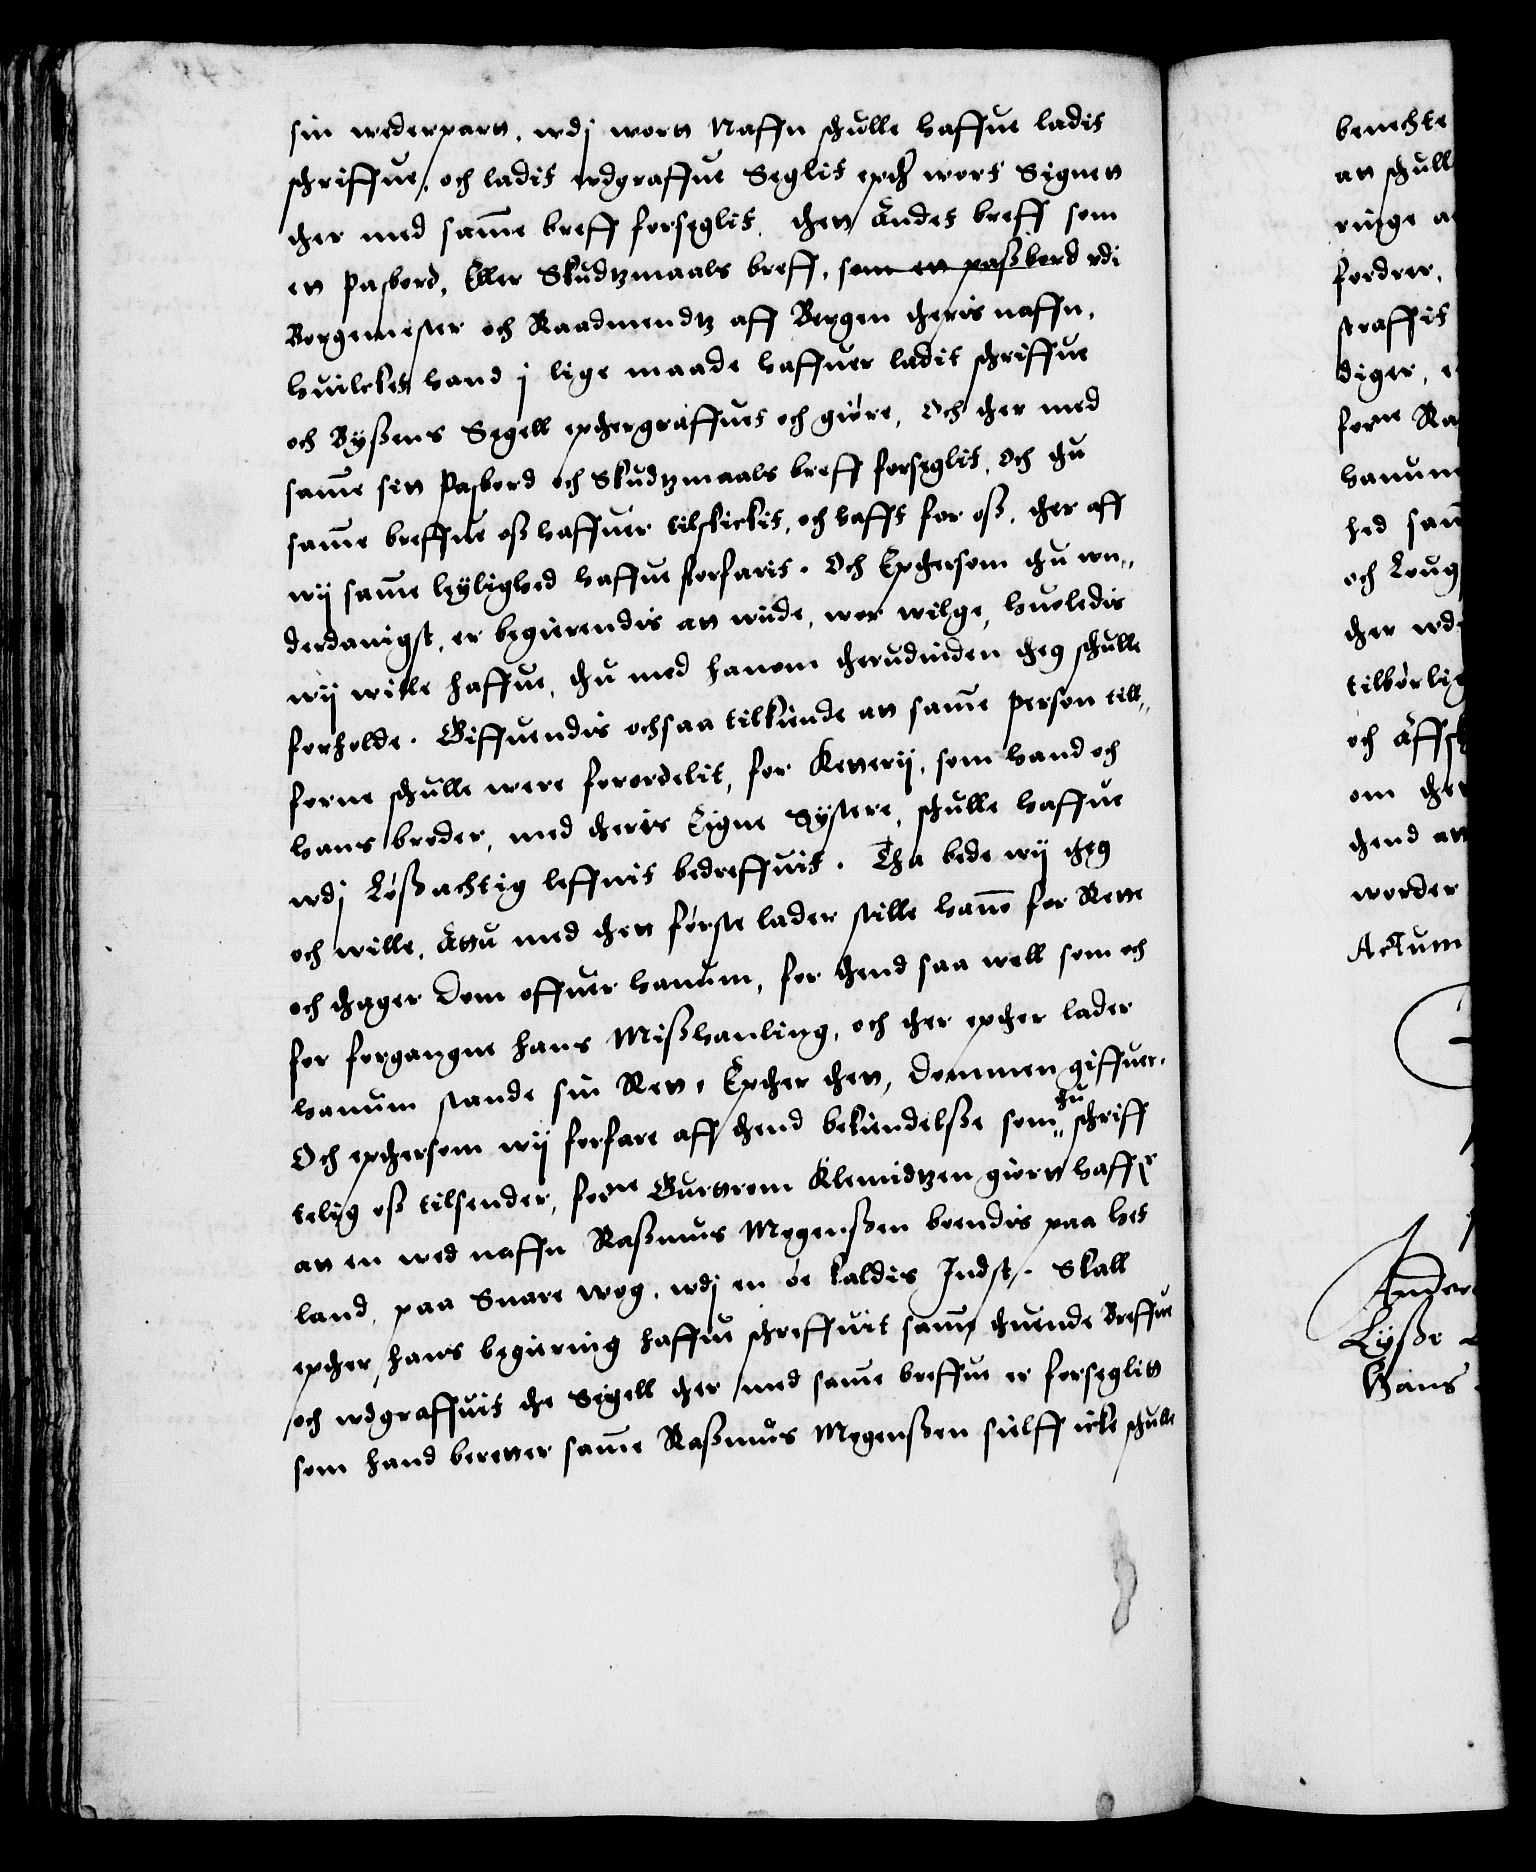 sin wederpart, wdj wort Naffn schulle haffue ladit
schriffue, och ladit wdgraffue Seglit epther wort Signet
ther med samme breff forseglit. thet Andet breff som
en Pasbord, Eller Skudtzmaals breff, som en passbord vdi
Borgemester och Raadmendtz aff Bergen theris naffn,
huilcket hand j lige maade haffuer ladit schriffue
och Byssens Segell epthergraffuet och giøre, Och ther med
samme sin Pasbord och Skudtzmaals breff forseglit, Och thu
samme breffue oss haffuer tilskickit, och hafft for oss, ther aff
wij samme leylighed haffue forfarit. Och Epthersom thu wn,,
derdanigst, er begierendis at wiide, wor wilge, huoledis
wij wille haffue, thu med hanom therudinden theg schulle
forholde. Giffuendis ochsaa tilkiende at samme person till,,
forne schulle were forordelit, for Ketterij, som hand och
hans broder, med theris Eigne Søstere, schulle haffue
wdj Løssachtig leffnit bedreffuit. Tha bede wij theg
och wille, Attu med thet første lader stille hanno for Rette
och thager dom offuer hanum, for thend saa well som och
for forgangne hans Misshanling, och ther epther lader
hanum stande sin Ret, Epther thet, dommen giffuer.
Och epthersom wij forfare aff thend bekiendelsse som thu,, schriff
telig oss tilsender, forne Guttrom Klemidtzen giort haffr
at en wed naffn Rassmus Mogenssen boendis paa Het
land, paa Snare wog, wdj en øe kaldis Indst. Skall
epther hans begiering haffue schreffuit samme thuende Breffue
och wdgraffuit the Segell ther med samme breffue er forseglit
som hand beretter samme Rassmus Mogenssen sielff icke schulle
benechte
at schull
ringe a
fordrer,
straffit
diger, e
forne Ra
hanum
hed sam
och Loug
ther wd
tilbørlig
och Affsk
om thet
thend at
worder
Actum
Ander
Lysse
Hans